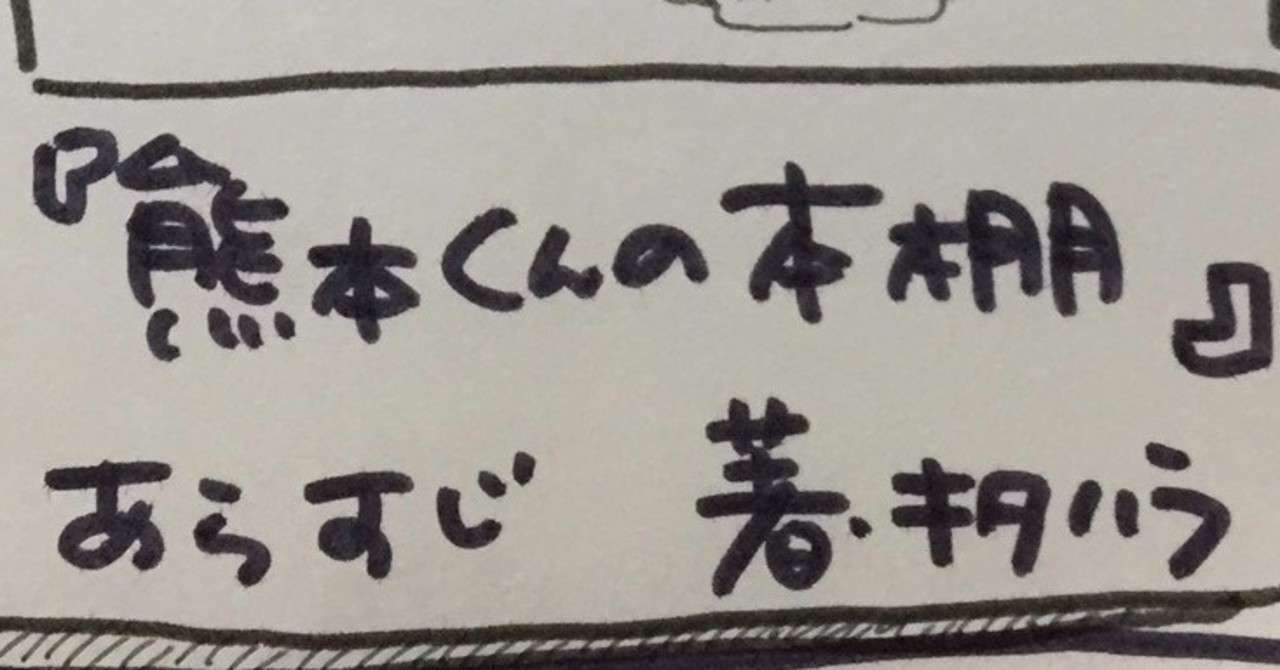 『熊本くんの本棚』
あらすじ 著・キタハラ